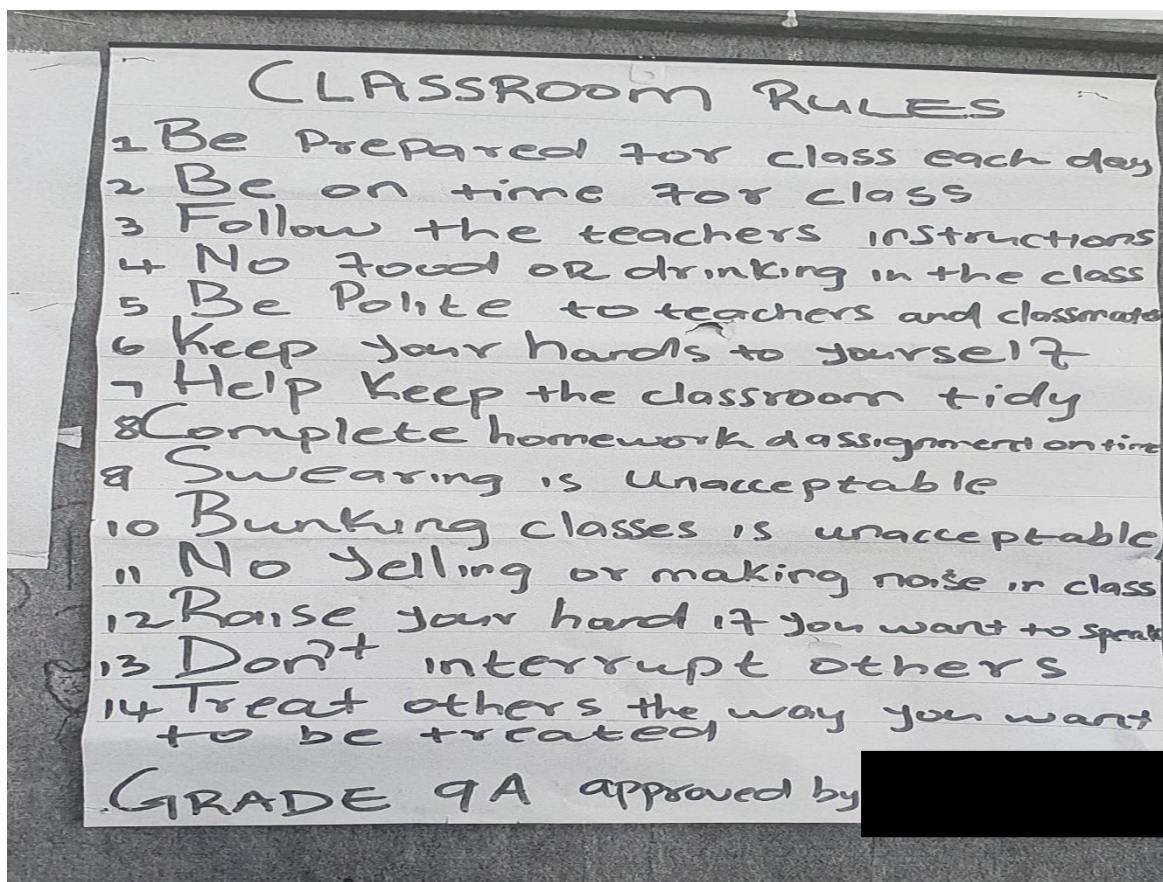 CLASSROOM RULES
1 Be Prepared for class each day
2 Be on time for class
3 Follow the teachers instructions
4 No food OR drinking in the class
5 Be Polite to teachers and classmates
6 Keep your hands to yourself
7 Help keep the classroom tidy
8 Complete homework & assignment on time
9 Swearing is unacceptable
10 Bunking classes is unacceptable
11 No yelling or making noise in class
12 Raise your hand if you want to speak
13 Don't interrupt others
14 Treat others the way you want
to be treated
GRADE 9A approved by